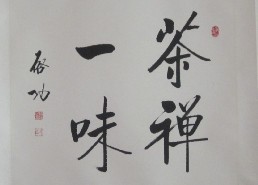 茶禅
一味
启功